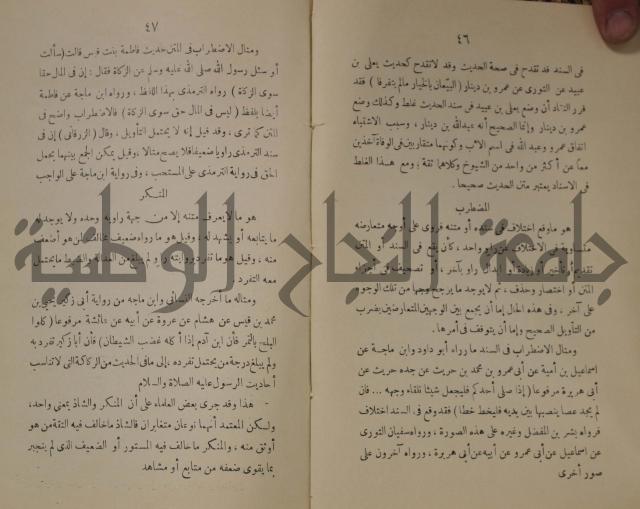 ٤٦
فى السند قد تقدح فى صحة الحديث وقد لا تقدح كحديث يعلى بن
عبيد عن الثورى عن عمرو بن دينار (البيعان بالخيار مالم يتفرقا) فقد
قرر النقاد أن وضع يعلى بن عبيد فى سند الحديث غلط وكذلك وضع
عمرو بن دينار وإنما الصحيح أنه عبدالله بن دينار، وسبب الاشتباه
اتفاق عمرو وعبد الله فى اسم الأب وكونهما متقاربين فى الوفاة آخذين
معاً عن أكثر من واحد من الشيوخ وكلاهما ثقة؛ ومع هذا الغلط
فى الاسناد يعتبر متن الحديث صحيحا.
المضطرب
هو ما وقع اختلاف فى سنده أو متنه فروى على أوجه متعارضه
متساوية فى الاختلاف عن راو واحد، كأن يقع فى السند أو المتن
تقديم أو تأخير أو زيادة أو إبدال راو بآخر، أو تصحيف فى أجزاء
المتن أو اختصار وحذف، ثم لا يوجد ما يرجح وجها من تلك الوجوه
على آخر، وفى هذه الحال إما أن يجمع بين الوجهين المتعارضين بضرب
من التأويل الصحيح وإما أن يتوقف فى أمرها.
ومثال الاضطراب فى السند ما رراه أبو داود وابن ماجة عن
اسماعيل بن أمية عن أبى عمرو بن محمد بن حريث عن جده حريث عن
أبى هريرة مرفوعا (إذا صلى أحدكم فليجعل شيئا تلقاء وجهه ... فان
لم يجد عصا ينصبها بين يديه فليخط خطا) فقد وقع فى السند اختلاف
فرواه بشر بن المفضل وغيره على هذه الصورة، ورواه سفيان الثورى
عن اسماعيل عن أبى عمرو عن أبيه عن أبى هريرة، ورواه آخرون على
صور أخرى
٤٧
ومثال الاضطراب فى المتن حديث فاطمة بنت قيس قالت (سألت
أو سئل رسول الله صلى الله عليه وسلم عن الزكاة فقال: إن فى المال حقا
سوى الزكاة) رواه الترمذى بهذا اللفظ، ورواه ابن ماجة عن فاطمة
أيضا بلفظ (ليس فى المال حق سوى الزكاة) فالاضطراب واضح فى
المتن كما ترى، وقد قيل إنه لا يحتمل التأويل، وقال (الزرقانى) إن فى
سند الترمذى راويا ضعيفا فلا يصح مثالا، وقيل يمكن الجمع بينهما بحمل
الحق فى رواية الترمذى على المستحب، وفى رواية ابن ماجة على الواجب
المنكر
هو ما لا يعرف متنه إلا من جهة راويه وحده ولا يوجد له
ما يتابعه أو يشهد له، وقيل هو ما رواه ضعيف مخالف لمن هو أضعف
منه، وقيل هو ما تفرد بروايته راو لم يبلغ من العدالة والضبط ما يحتمل
معه التفرد
ومثاله ما أخرجه النسائى وابن ماجه من رواية أبى زكير يحيى بن
محمد بن قيس عن هشام عن عروة عن أبيه عن عائشة مرفوعا (كلوا
البلح بالتمر فأن ابن آدم إذا أكله غضب الشيطان) فأن أبا زكير تفرد به
ولم يبلغ درجة من يحتمل تفرده، إلى مافى الحديث من الركاكة التى لا تناسب
أحاديث الرسول عليه الصلاة والسلام
- هذا وقد جرى بعض العلماء على أن المنكر والشاذ بمعنى واحد،
ولكن المعتمد أنهما نوعان متغايران فالشاذ ما خالف فيه الثقة من هو
أوثق منه، والمنكر ما خالف فيه المستور أو الضعيف الذى لم ينجبر
بما يقوى ضعفه من متابع أو مشاهد
جامعة النجاح الوطنية